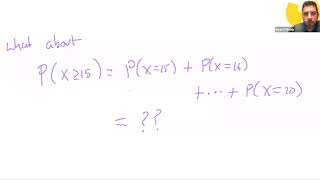 what about
P(X≥15) = P(X=15) + P(X=16)
+ ⋯ + P(X=20)
= ??